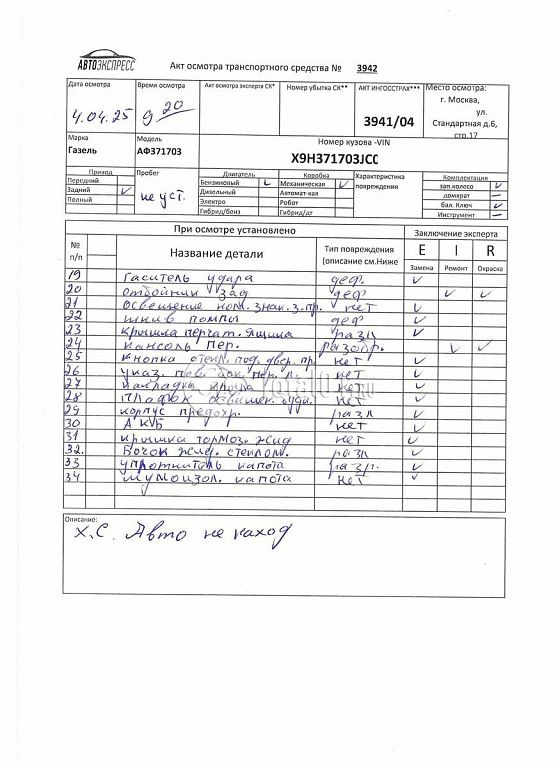 АВТОЭКСПРЕСС
Акт осмотра транспортного средства № 3942
Дата осмотра Время осмотра Акт осмотра эксперта СК* Номер убытка СК** АКТ ИНГОССТРАХ*** Место осмотра:
4.04.25 9 20 3941/04 г. Москва,
ул.
Стандартная д.6,
стр.17
Марка Модель Номер кузова -VIN
Газель АФ371703 X9H371703JCC
Привод Пробег Двигатель Коробка Характеристика повреждения Комплектация
Передний Бензиновый ✓ Механическая ✓ зап.колесо ✓
Задний ✓ не уст. Дизельный Автомат-кая домкрат
Полный Электро Робот бал. Ключ ✓
Гибрид/бенз Гибрид/дт Инструмент —
При осмотре установлено Заключение эксперта
№ п/п Название детали Тип повреждения (описание см.Ниже E I R
Замена Ремонт Окраска
19 Гаситель удара деф. ✓
20 отбойник зад деф ✓ ✓
21 освещение ном. знак. з. пр. нет ✓
22 шкив помпы деф ✓
23 крышка перчат. ящика разл ✓
24 Консоль пер. разобр. ✓ ✓
25 кнопка стекл. под. двер. пр. нет ✓
26 указ. пов. бок. пер. л. нет ✓
27 накладки нет ✓
28 плафон освещен. нет ✓
29 корпус предохр. разл ✓
30 АКБ нет ✓
31 крышка тормоз. жид нет ✓
32. Бачок жид. стеклом. разл ✓
33 уплотнитель капота разр. ✓
34 шумоизол. капота нет ✓
Описание:
Х.С. Авто не наход